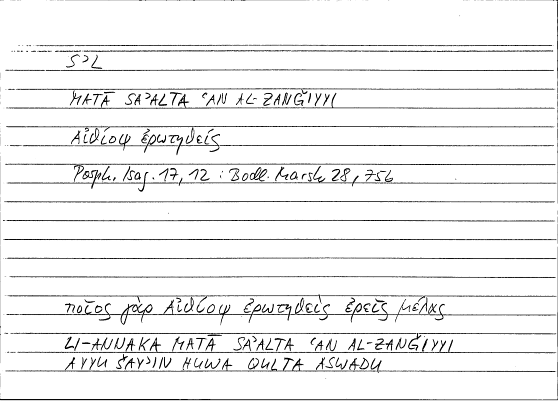 SʾL
MATĀ SAʾALTA ʿAN AL-ZANǦIYYI
Αἰθίοψ ἐρωτηθείς
Porph. Isag. 17, 12 : Bodl. Marsh 28, 75b
ποῖος γὰρ Αἰθίοψ ἐρωτηθεὶς ἐρεῖς μέλας
LI-ANNAKA MATĀ SAʾALTA ʿAN AL-ZANǦIYYI
AYYU ŠAYʾIN HUWA QULTA ASWADU